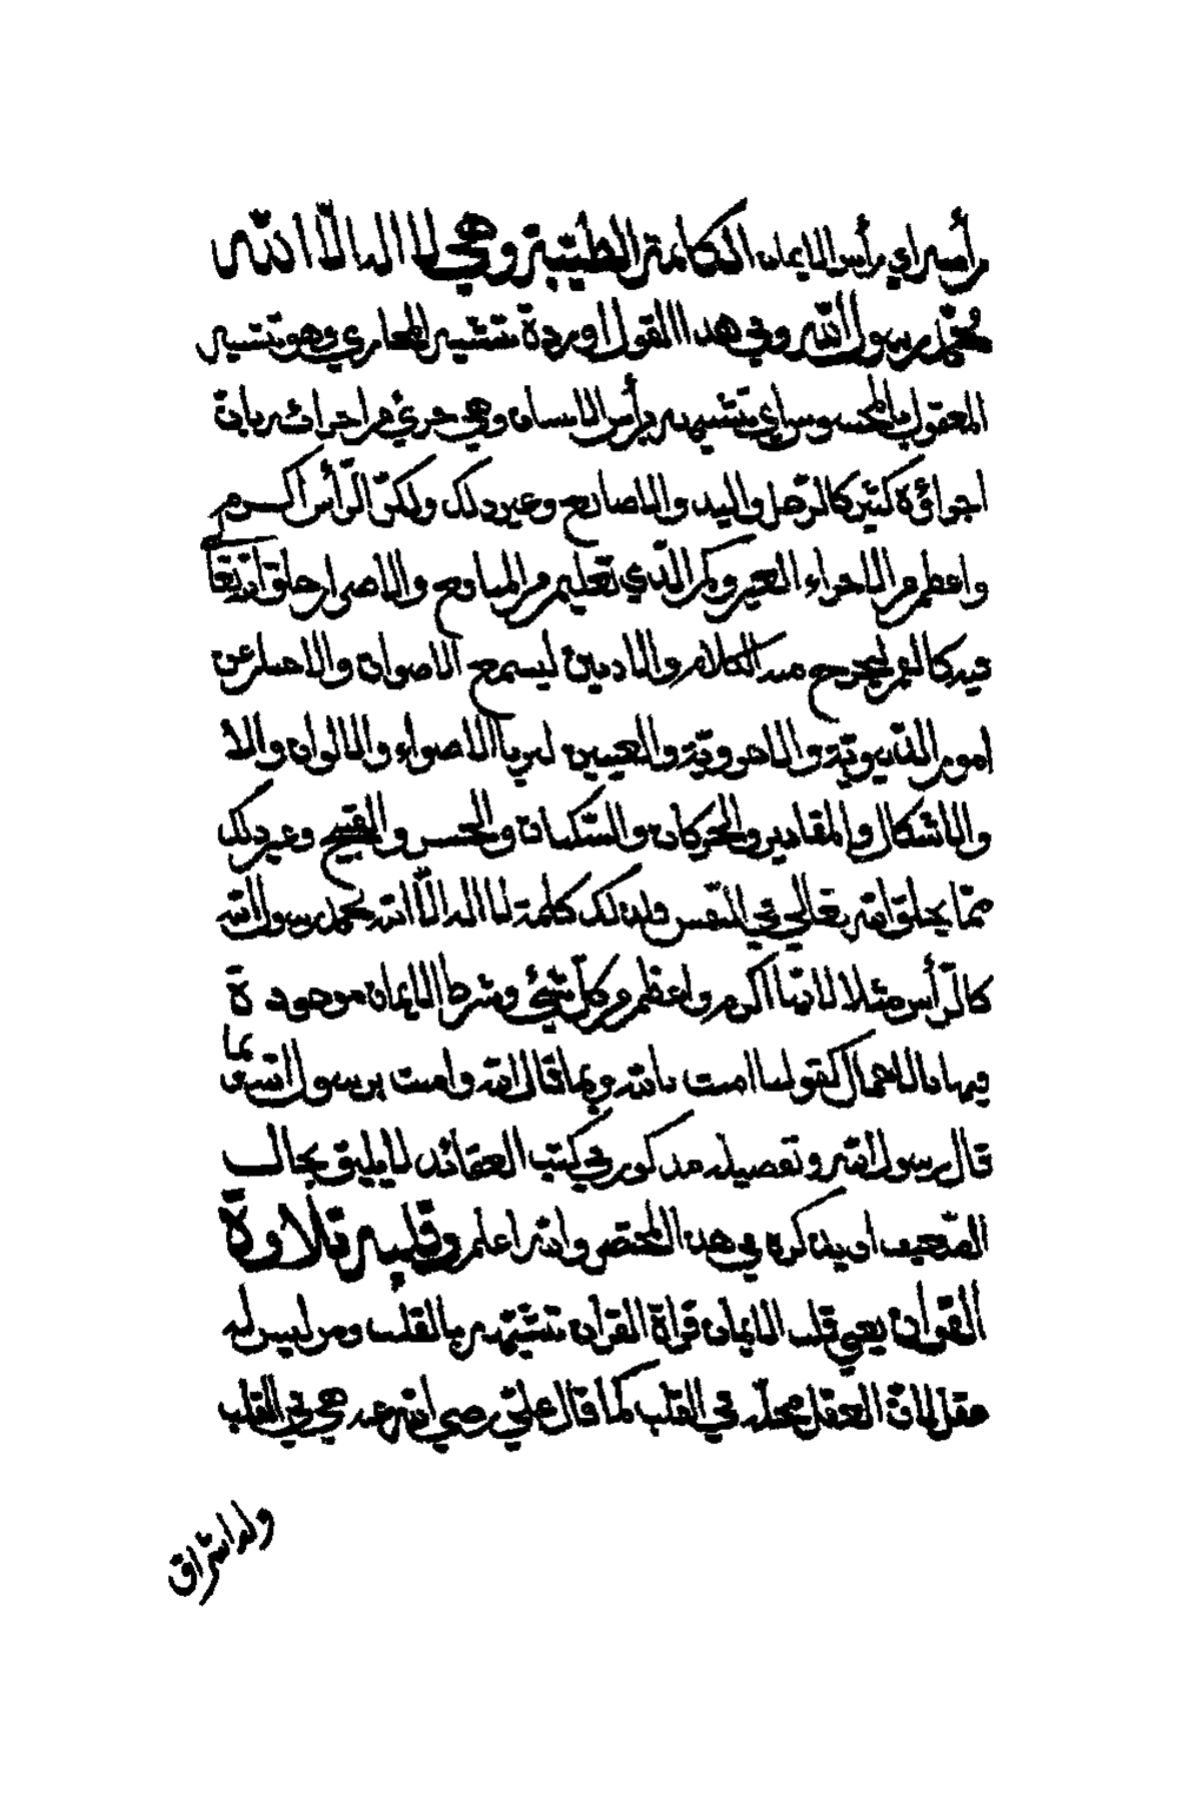 رأسه اي رأس الايمان الكلمة الطيبة وهي لا اله الا الله
محمد رسول الله وفي هذا القول اوردة تشبيه المجازي وهو تشبيه
المعقول بالمحسوس اي تشبيه برأس الانسان وهي جزئ من اجزائه بان
اجزاؤه كثيرة كالرجل واليد والاصابع وغير ذلك ولكن الرأس اكرم
واعظم من الاجزاء الغير وكر الذي تعليم من المنافع والاصرار خلق الله تعا
فيه كالفم ليخرج منه الكلام والاذنين ليسمع الاصوات والاخبار عن
امور الدنيوية والاخروية والعينين ليريا الاضواء والالوان والا
والاشكال والمقادير والحركات والسكنات والحسن والقبيح وغير ذلك
مما يخلق الله تعالى في النفس فلذلك كلمة لا اله الا الله محمد رسول الله
كالرأس مثلا لانها اكرم واعظم من كل شيئ وشرط الايمان موجودة
فيها بالاجمال كقولنا امنت بالله وبما قال الله وامنت برسول الله بما
قال رسول الله وتفصيله مذكور في كتب العقائد لا يليق بحال
الضعيف ان يذكره في هذا المختصر والله اعلم وقلبه تلاوة
القرآن يعني قلب الايمان قراة القرآن تشبيه بالقلب ومن ليس له
عقل لان العقل محله في القلب كما قال علي رضي الله عنه هي في القلب
وله اشراق